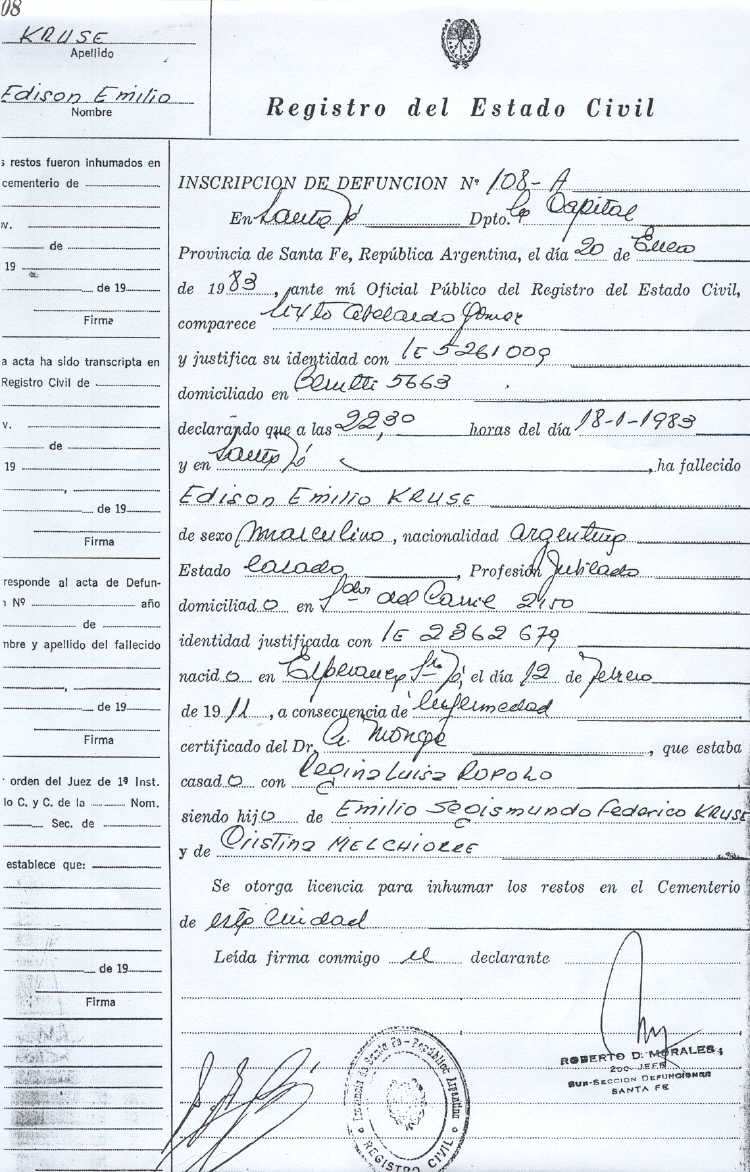 08
KRUSE
Apellido
Edison Emilio
Nombre
Registro del Estado Civil
s restos fueron inhumados en
cementerio de
v.
de
19
de 19
Firma
a acta ha sido transcripta en
Registro Civil de
v.
de
19
de 19
Firma
responde al acta de Defun-
n Nº año
de
mbre y apellido del fallecido
de 19
Firma
orden del Juez de 1ª Inst.
lo C. y C. de la Nom.
Sec. de
establece que:
de 19
Firma
INSCRIPCION DE DEFUNCION Nº 108-A
En Santa Fé Dpto. La Capital
Provincia de Santa Fe, República Argentina, el día 20 de Enero
de 1983, ante mí Oficial Público del Registro del Estado Civil,
comparece Sixto Abelardo Gomez
y justifica su identidad con LE 5261009
domiciliado en 5663
declarando que a las 22,30 horas del día 18-1-1983
y en Santa Fé, ha fallecido
Edison Emilio KRUSE
de sexo Masculino, nacionalidad Argentino
Estado Casado, Profesión Jubilado
domiciliado en Sdor del Carril 2150
identidad justificada con LE 2362679
nacido en Esperanza Sta Fé, el día 12 de Febrero
de 1911, a consecuencia de enfermedad
certificado del Dr. A. Monge, que estaba
casado con Regina Luisa ROPOLO
siendo hijo de Emilio Segismundo Federico KRUSE
y de Cristina MELCHIORRE
Se otorga licencia para inhumar los restos en el Cementerio
de esta Ciudad
Leída firma conmigo el declarante
ROBERTO D. MORALES
2DO. JEFE
SUB-SECCION DEFUNCIONES
SANTA FE
Provincia de Santa Fé - República Argentina
REGISTRO CIVIL